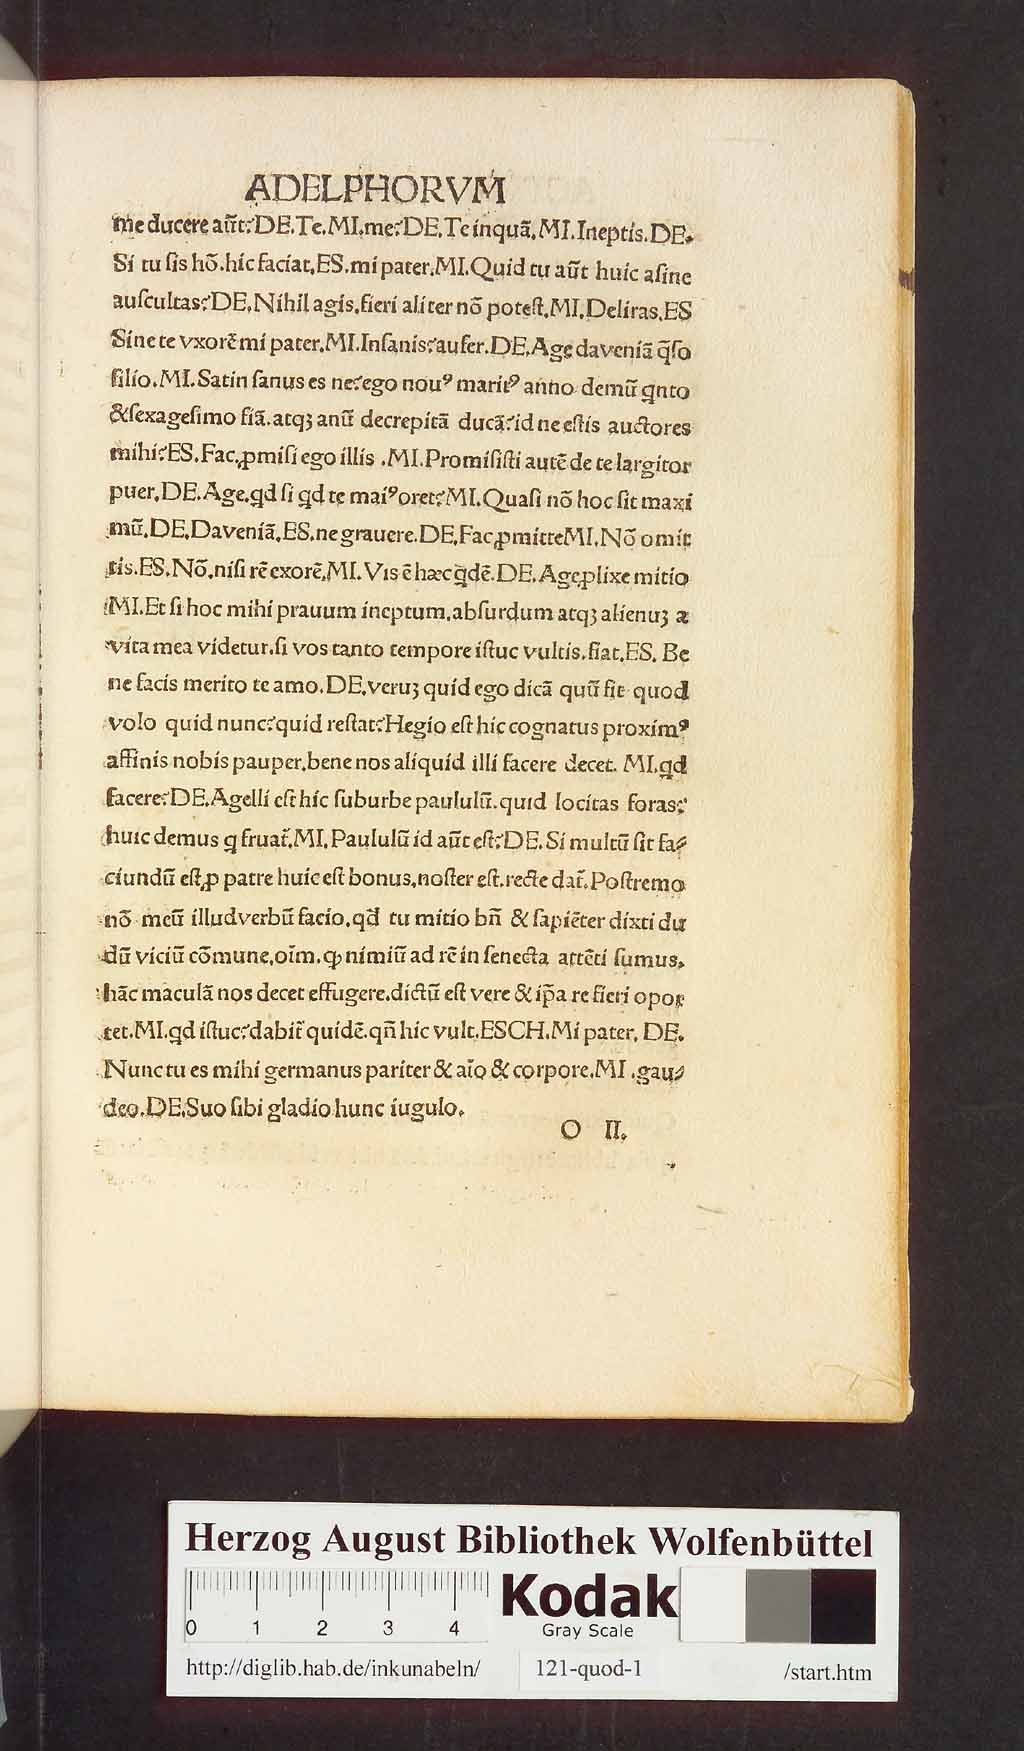 ADELPHORVM
me ducere aũt?DE.Te.MI.me?DE.Te inquã.MI.Ineptis.DE.
Si tu sis hõ.hic faciat.ES.mi pater.MI.Quid tu aũt huic asine
auscultas?DE.Nihil agis.fieri aliter nõ potest.MI.Deliras.ES
Sine te vxorẽ mi pater.MI.Insanis?aufer.DE.Age da veniã q̃so
filio.MI.Satin sanus es ne?ego nouꝰ maritꝰ anno demũ qnto
&sexagesimo fiã.atqꝫ anũ decrepitã ducã?id ne estis auctores
mihi?ES.Fac.ꝓmisi ego illis .MI.Promisisti autẽ de te largitor
puer.DE.Age.qd si qd te maiꝰoret?MI.Quasi nõ hoc sit maxi
mũ.DE.Da veniã.ES.ne grauere.DE.Fac ꝓmitte MI.Nõ omit
tis.ES.Nõ.nisi rẽ exorẽ.MI.Vis ẽ hæc q̃dẽ.DE.Age ꝓlixe mitio
MI.Et si hoc mihi prauum ineptum.absurdum atqꝫ alienuꝫ a
vita mea videtur.si vos tanto tempore istuc vultis.fiat.ES. Be
ne facis merito te amo.DE.veruꝫ quid ego dicã quũ fit quod
volo quid nunc?quid restat?Hegio est hic cognatus proximꝰ
affinis nobis pauper.bene nos aliquid illi facere decet. MI.qd
facere?DE.Agelli est hic suburbe paululũ.quid locitas foras?
huic demus q fruat̃.MI.Paululũ id aũt est?DE.Si multũ sit fa⸗
ciundũ est.ꝓ patre huic est bonus.noster est.recte dat̃.Postremo
nõ meũ illud verbũ facio.qd̃ tu mitio bñ & sapiẽter dixti du
dũ viciũ cõmune.oĩm.ꝙ nimiũ ad rẽ in senecta attẽti sumus.
hãc maculã nos decet effugere.dictũ est vere & ip̃a re fieri opor
tet.MI.qd istuc?dabit̃ quidẽ.qñ hic vult.ESCH.Mi pater. DE.
Nunc tu es mihi germanus pariter & aĩo & corpore.MI .gau⸗
deo.DE.Suo sibi gladio hunc iugulo.
O II.
Herzog August Bibliothek Wolfenbüttel
0 1 2 3 4
Kodak
Gray Scale
http://diglib.hab.de/inkunabeln/ 121-quod-1 /start.htm